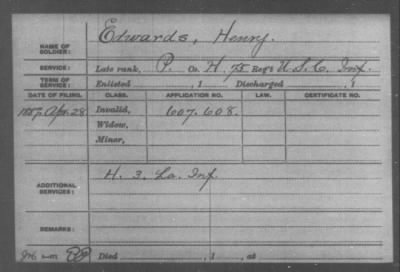 NAME OF SOLDIER: Edwards, Henry.
SERVICE: Late rank, P. Co. H, 75 Reg't U. S. C. Inf.
TERM OF SERVICE: Enlisted , 1 Discharged , 1
DATE OF FILING. CLASS. APPLICATION NO. LAW. CERTIFICATE NO.
1887, Apr. 28 Invalid, 607.608.
Widow,
Minor,
ADDITIONAL SERVICES: H. 3. La. Inf.
REMARKS:
Died , 1 , at